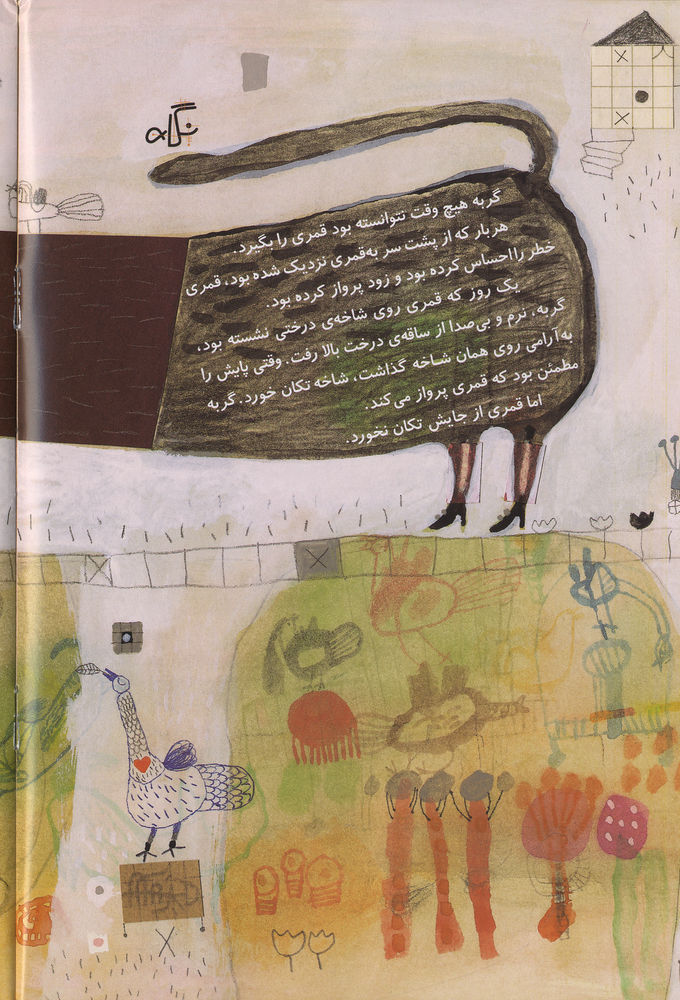 نگاه
گربه هیچ وقت نتوانسته بود قمری را بگیرد.
هربار که از پشت سر به‌قمری نزدیک شده بود، قمری
خطر رااحساس کرده بود و زود پرواز کرده بود.
یک روز که قمری روی شاخه‌ی درختی نشسته بود،
گربه، نرم و بی‌صدا از ساقه‌ی درخت بالا رفت. وقتی پایش را
به‌آرامی روی همان شاخه گذاشت، شاخه تکان خورد. گربه
مطمئن بود که قمری پرواز می‌کند.
اما قمری از جایش تکان نخورد.